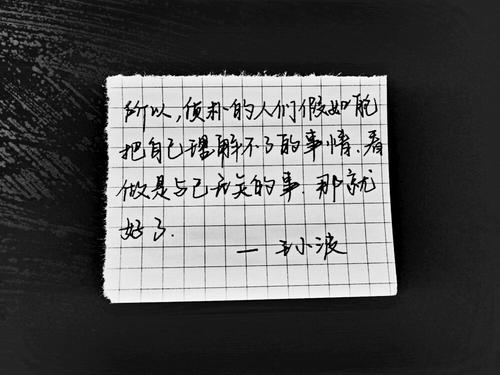 所以,负朴的人们假如能
把自己理解不了的事情.看
做是与己无关的事.那就
好了.
—王小波